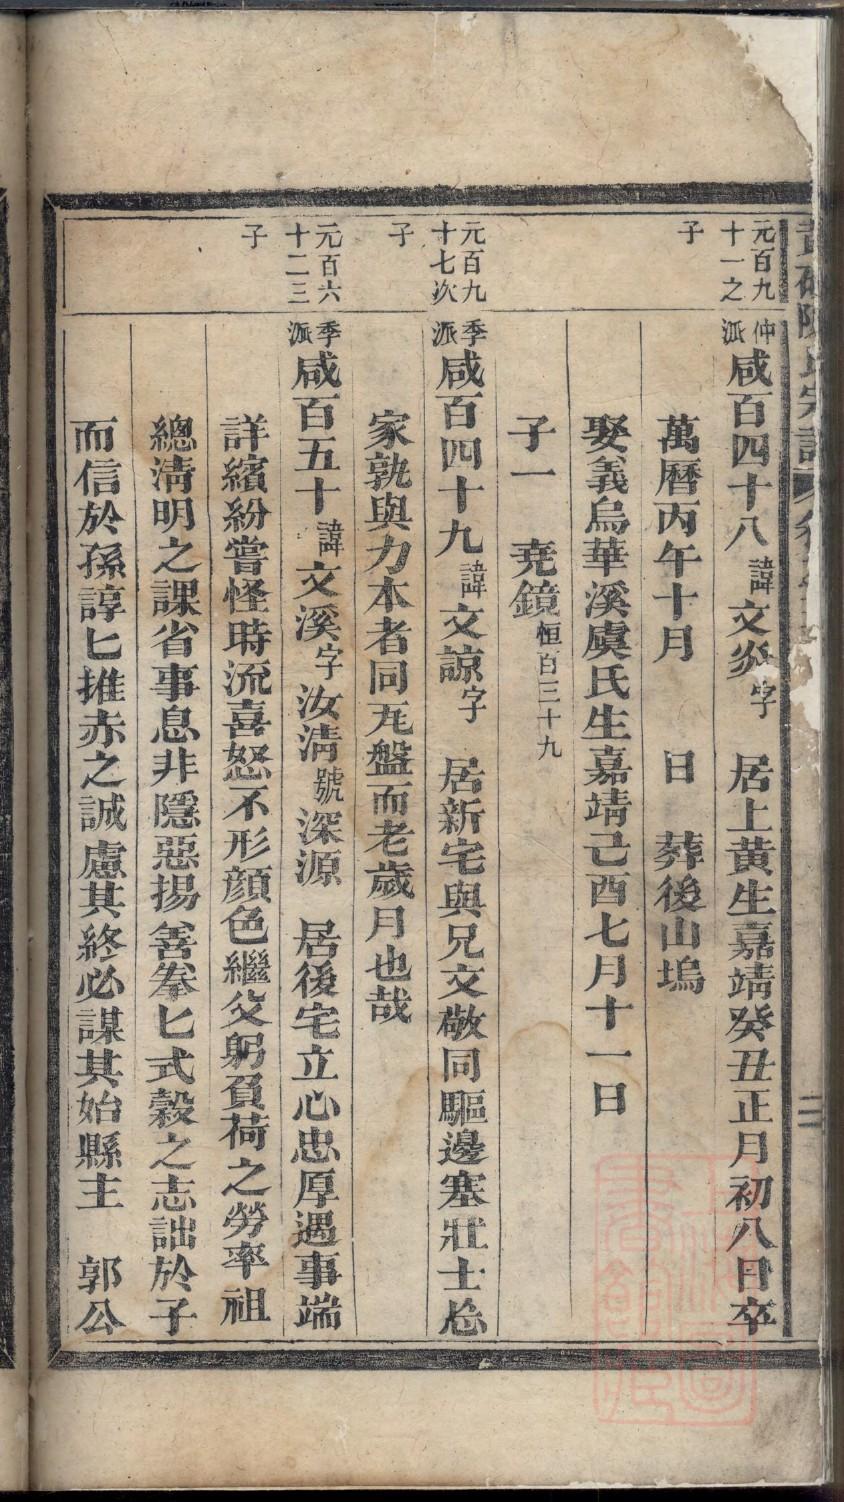 元百九十一之子
仲派咸百四十八諱文炎字 居上黄生嘉靖癸丑正月初八日卒
萬曆丙午十月 日 葬後山塢
娶義烏華溪虞氏生嘉靖己酉七月十一日
子一 堯鏡恒百三十九
元百九十七次子
季派咸百四十九諱文諒字 居新宅與兄文敬同驅邊塞壯士忘
家孰與力本者同瓦盤而老歲月也哉
元百六十二三子
季派咸百五十諱文溪字汝淸號深源 居後宅立心忠厚遇事端
詳繽紛嘗怪時流喜怒不形顔色繼父躬負荷之勞率祖
總淸明之課省事息非隱惡揚善拳匕式穀之志詘於子
而信於孫諄匕推赤之誠慮其終必謀其始縣主 郭公